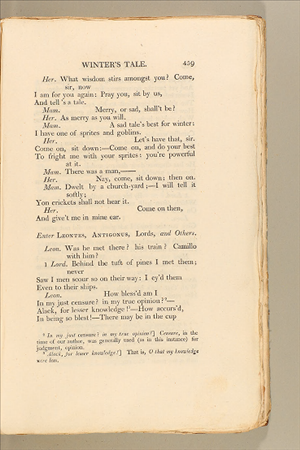 WINTER'S TALE. 459
Her. What wisdom stirs amongst you? Come,
sir, now
I am for you again: Pray you, sit by us,
And tell's a tale.
Mam. Merry, or sad, shall't be?
Her. As merry as you will.
Mam. A sad tale's best for winter:
I have one of sprites and goblins.
Her. Let's have that, sir.
Come on, sit down:—Come on, and do your best
To fright me with your sprites: you're powerful
at it.
Mam. There was a man,——
Her. Nay, come, sit down; then on.
Mam. Dwelt by a church-yard;—I will tell it
softly;
Yon crickets shall not hear it.
Her. Come on then,
And give't me in mine ear.
Enter LEONTES, ANTIGONUS, Lords, and Others.
Leon. Was he met there? his train? Camillo
with him?
1 Lord. Behind the tuft of pines I met them;
never
Saw I men scour so on their way: I ey'd them
Even to their ships.
Leon. How bless'd am I
In my just censure? in my true opinion?³—
Alack, for lesser knowledge!⁴—How accurs'd,
In being so blest!—There may be in the cup
³ In my just censure? in my true opinion?] Censure, in the
time of our author, was generally used (as in this instance) for
judgment, opinion.
⁴ Alack, for lesser knowledge!] That is, O that my knowledge
were less.